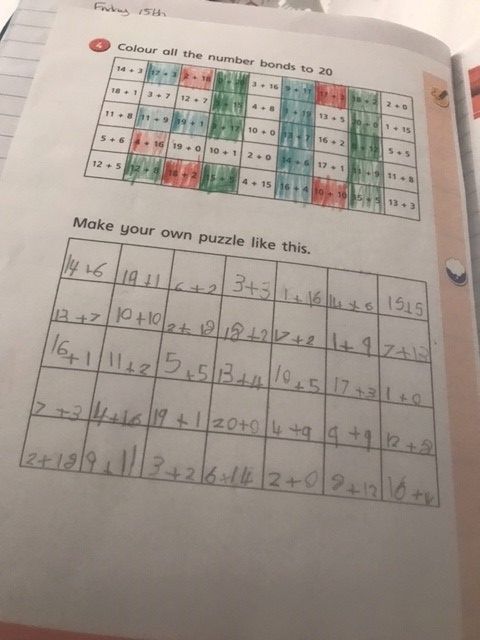 Friday 15th
4 Colour all the number bonds to 20
14 + 3 17 + 3 2 + 18 3 + 16 9 + 11 18 + 2 2 + 0
18 + 1 3 + 7 12 + 7 15 4 + 8 13 + 5 1 + 15
11 + 8 11 + 9 19 + 1 10 + 0 16 + 2 5 + 5
5 + 6 4 + 16 19 + 0 10 + 1 2 + 0 14 + 6 17 + 1 11 + 9 11 + 8
12 + 5 12 + 8 18 + 2 4 + 15 16 + 4 10 + 10 15 + 5 13 + 3
Make your own puzzle like this.
14 + 6 19 + 1 6 + 2 3 + 3 1 + 16 14 + 6 15 + 5
13 + 7 10 + 10 2 + 18 18 + 2 17 + 2 1 + 9 7 + 13
16 + 1 11 + 2 5 + 5 13 + 4 10 + 5 17 + 3 1 + 0
7 + 3 4 + 16 19 + 1 20 + 0 4 + 9 9 + 9 12 + 8
2 + 18 9 + 11 3 + 2 6 + 14 2 + 0 8 + 12 16 + 4